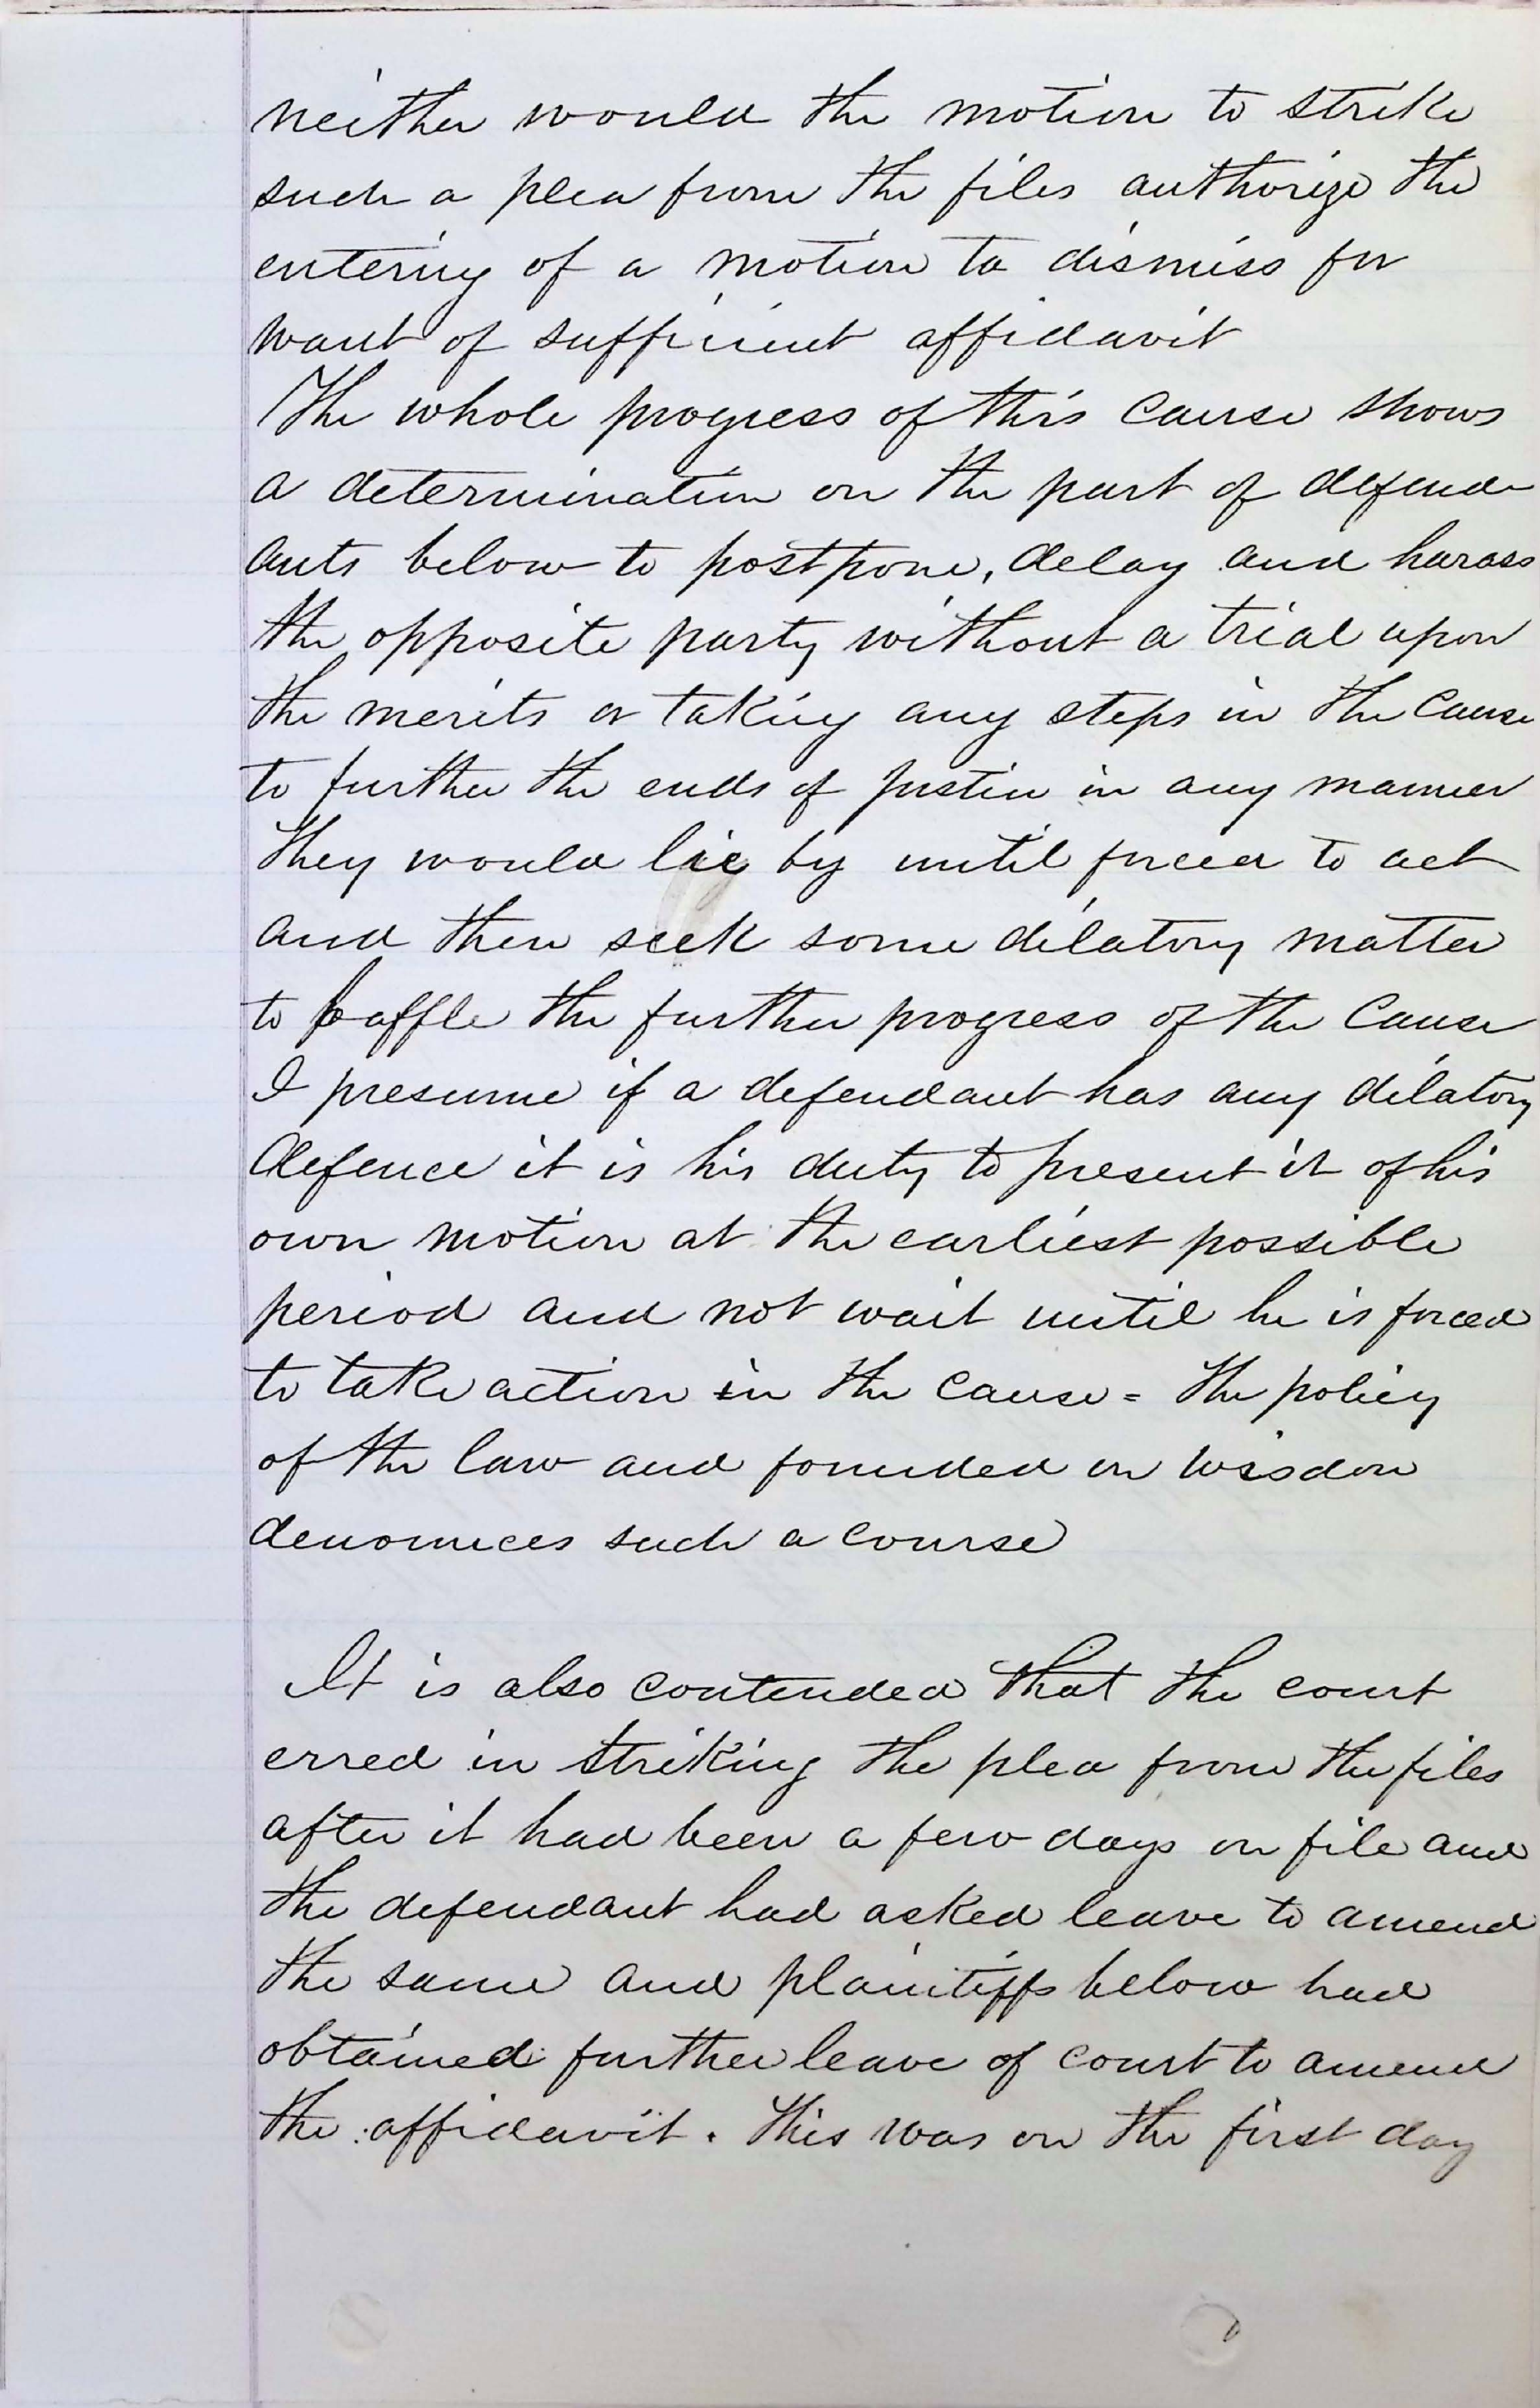 neither would the motion to strike
such a plea from the files authorize the
entering of a motion to dismiss for
want of sufficient affidavit
The whole progress of this cause shows
a determination on the part of defend-
ants below to postpone, delay and harass
the opposite party without a trial upon
the merits or taking any steps in the cause
to further the ends of justice in any manner
They would lie by until forced to act
and then seek some dilatory matter
to baffle the further progress of the cause
I presume if a defendant has any dilatory
defence it is his duty to present it of his
own motion at the earliest possible
period and not wait until he is forced
to take action in the cause = the policy
of the law and founded on wisdom
denounces such a course
It is also contended that the court
erred in striking the plea from the files
after it had been a few days on file and
the defendant had asked leave to amend
the same and plaintiffs below had
obtained further leave of court to amend
the affidavit. This was on the first day